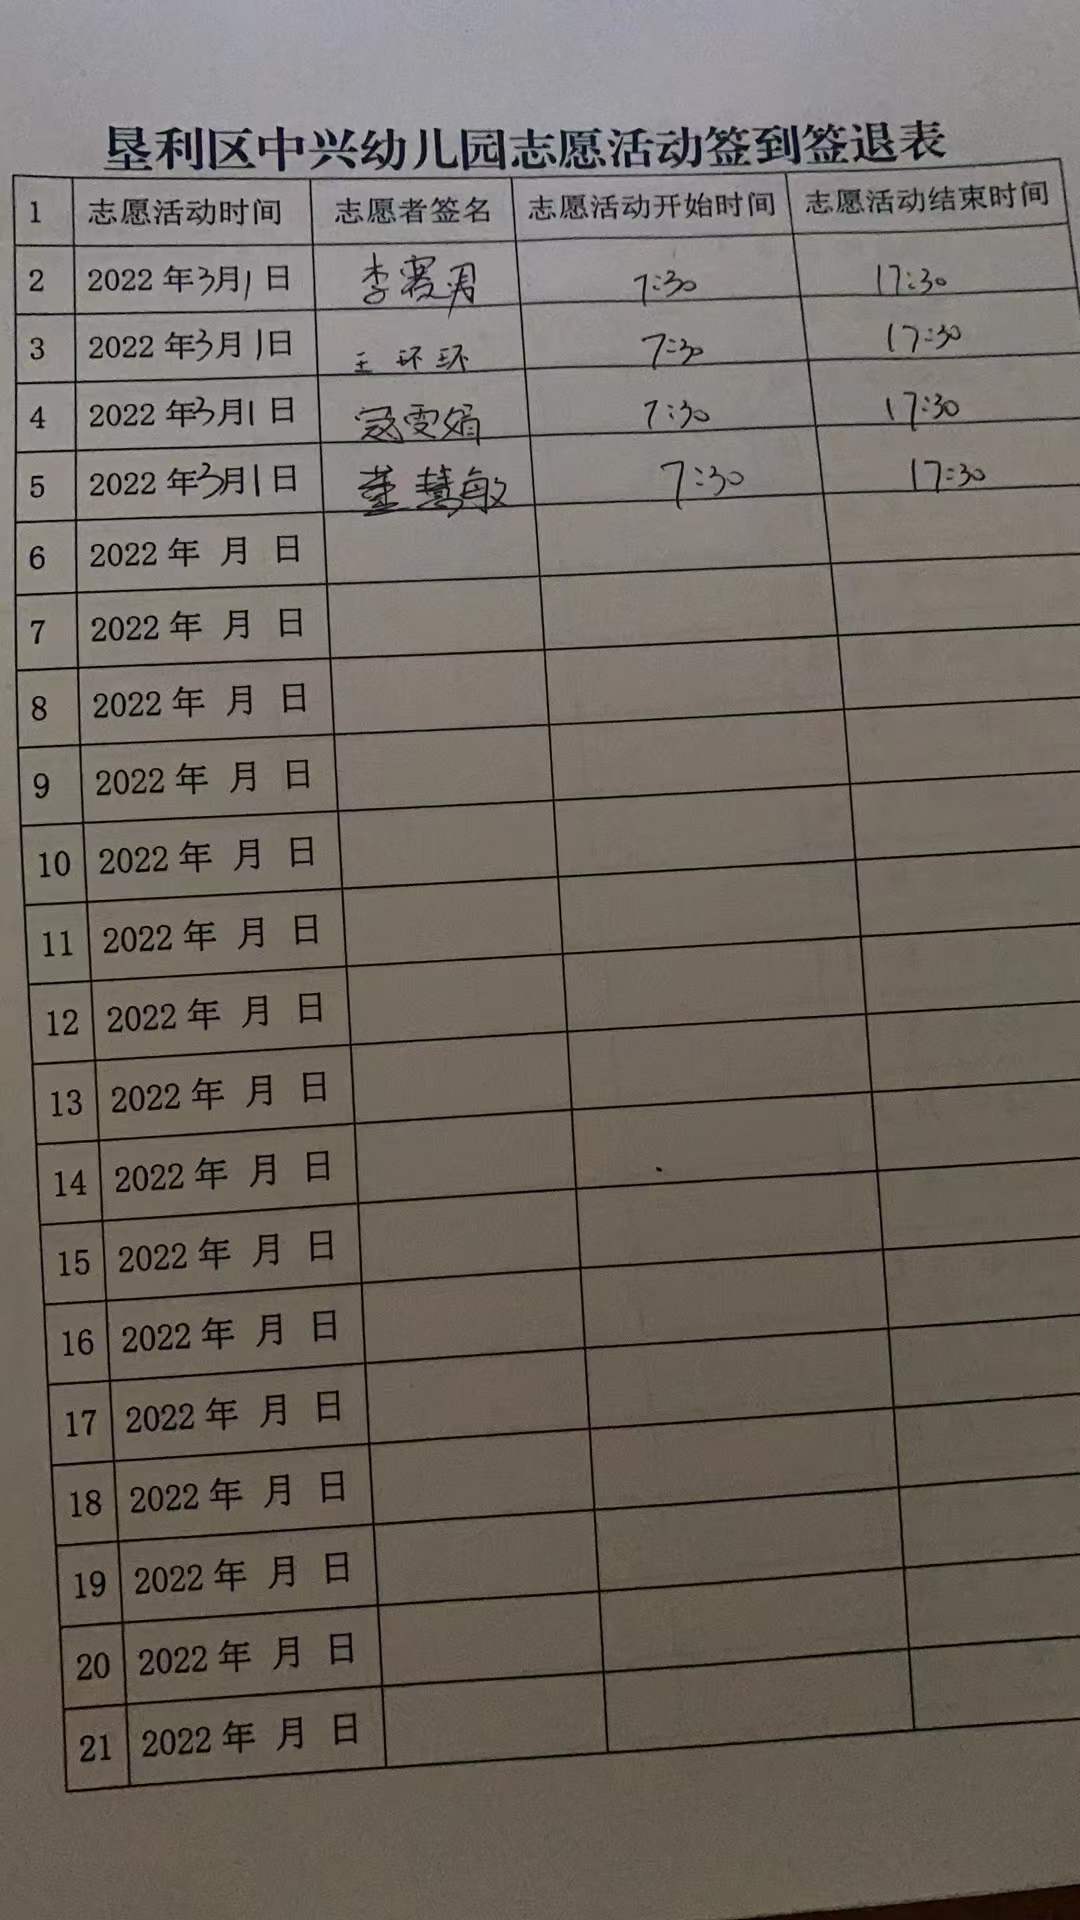 垦利区中兴幼儿园志愿活动签到签退表
1 志愿活动时间 志愿者签名 志愿活动开始时间 志愿活动结束时间
2 2022年3月1日 李赛男 7:30 17:30
3 2022年3月1日 王环环 7:30 17:30
4 2022年3月1日 寇雯娟 7:30 17:30
5 2022年3月1日 董慧敏 7:30 17:30
6 2022年 月 日
7 2022年 月 日
8 2022年 月 日
9 2022年 月 日
10 2022年 月 日
11 2022年 月 日
12 2022年 月 日
13 2022年 月 日
14 2022年 月 日
15 2022年 月 日
16 2022年 月 日
17 2022年 月 日
18 2022年 月 日
19 2022年 月 日
20 2022年 月 日
21 2022年 月 日